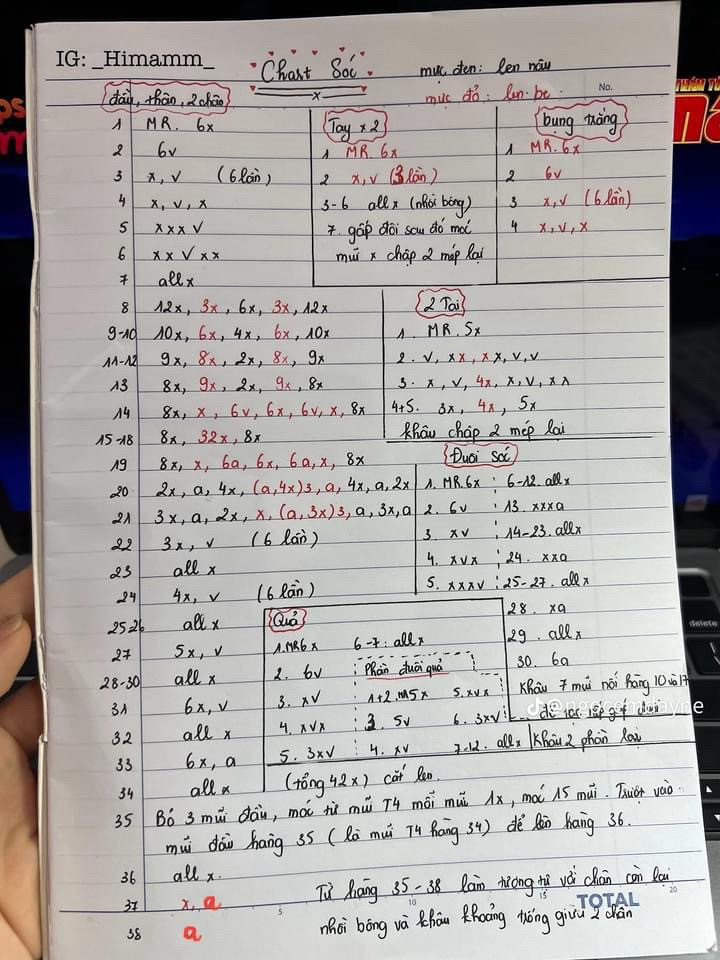 IG: _Himamm_
Chart Sóc
x
mực đen: len nâu
mực đỏ: len be
No.
đầu, thân, 2 chân
1 MR. 6x
2 6v
3 x, v (6 lần)
4 x, v, x
5 xxxv
6 xxvxx
7 all x
Tay x2
1 MR. 6x
2 x, v (3 lần)
3-6 all x (nhồi bông)
7. gấp đôi sau đó móc
mũi x chập 2 mép lại
bụng trắng
1 MR. 6x
2 6v
3 x, v (6 lần)
4 x, v, x
8 12x, 3x, 6x, 3x, 12x
9-10 10x, 6x, 4x, 6x, 10x
11-12 9x, 8x, 2x, 8x, 9x
13 8x, 9x, 2x, 9x, 8x
14 8x, x, 6v, 6x, 6v, x, 8x
15-18 8x, 32x, 8x
19 8x, x, 6a, 6x, 6a, x, 8x
20 2x, a, 4x, (a, 4x)3, a, 4x, a, 2x
21 3x, a, 2x, x, (a, 3x)3, a, 3x, a
22 3x, v (6 lần)
23 all x
24 4x, v (6 lần)
25-26 all x
27 5x, v
28-30 all x
31 6x, v
32 all x
33 6x, a
34 all x (tổng 42x) cắt len.
2 Tai
1. MR. 5x
2. v, xx, xx, v, v
3. x, v, 4x, x, v, xx
4+5. 3x, 4x, 5x
khâu chập 2 mép lại
Đuôi sóc
1. MR. 6x
2. 6v
3. xv
4. xvx
5. xxxv
6-12. all x
13. xxxa
14-23. all x
24. xxa
25-27. all x
28. xa
29. all x
30. 6a
Khâu 7 mũi nối hàng 10 và 17
Quả
1. MR6x
2. 6v
3. xv
4. xvx
5. 3xv
6-7: all x
Phần đuôi quả
1+2. M5x
3. 5v
4. xv
5. xvx
6. 3xv
7-12. all x
Khâu 2 phần lại
@ngocomdayne
35 Bỏ 3 mũi đầu, móc từ mũi T4 mỗi mũi 1x, móc 15 mũi. Trượt vào
mũi đầu hàng 35 (là mũi T4 hàng 34) để lên hàng 36.
36 all x.
37 x, a
38 a
Từ hàng 35-38 làm tương tự với chân còn lại
nhồi bông và khâu khoảng trống giữa 2 chân
5 10 15 20
TOTAL
delete